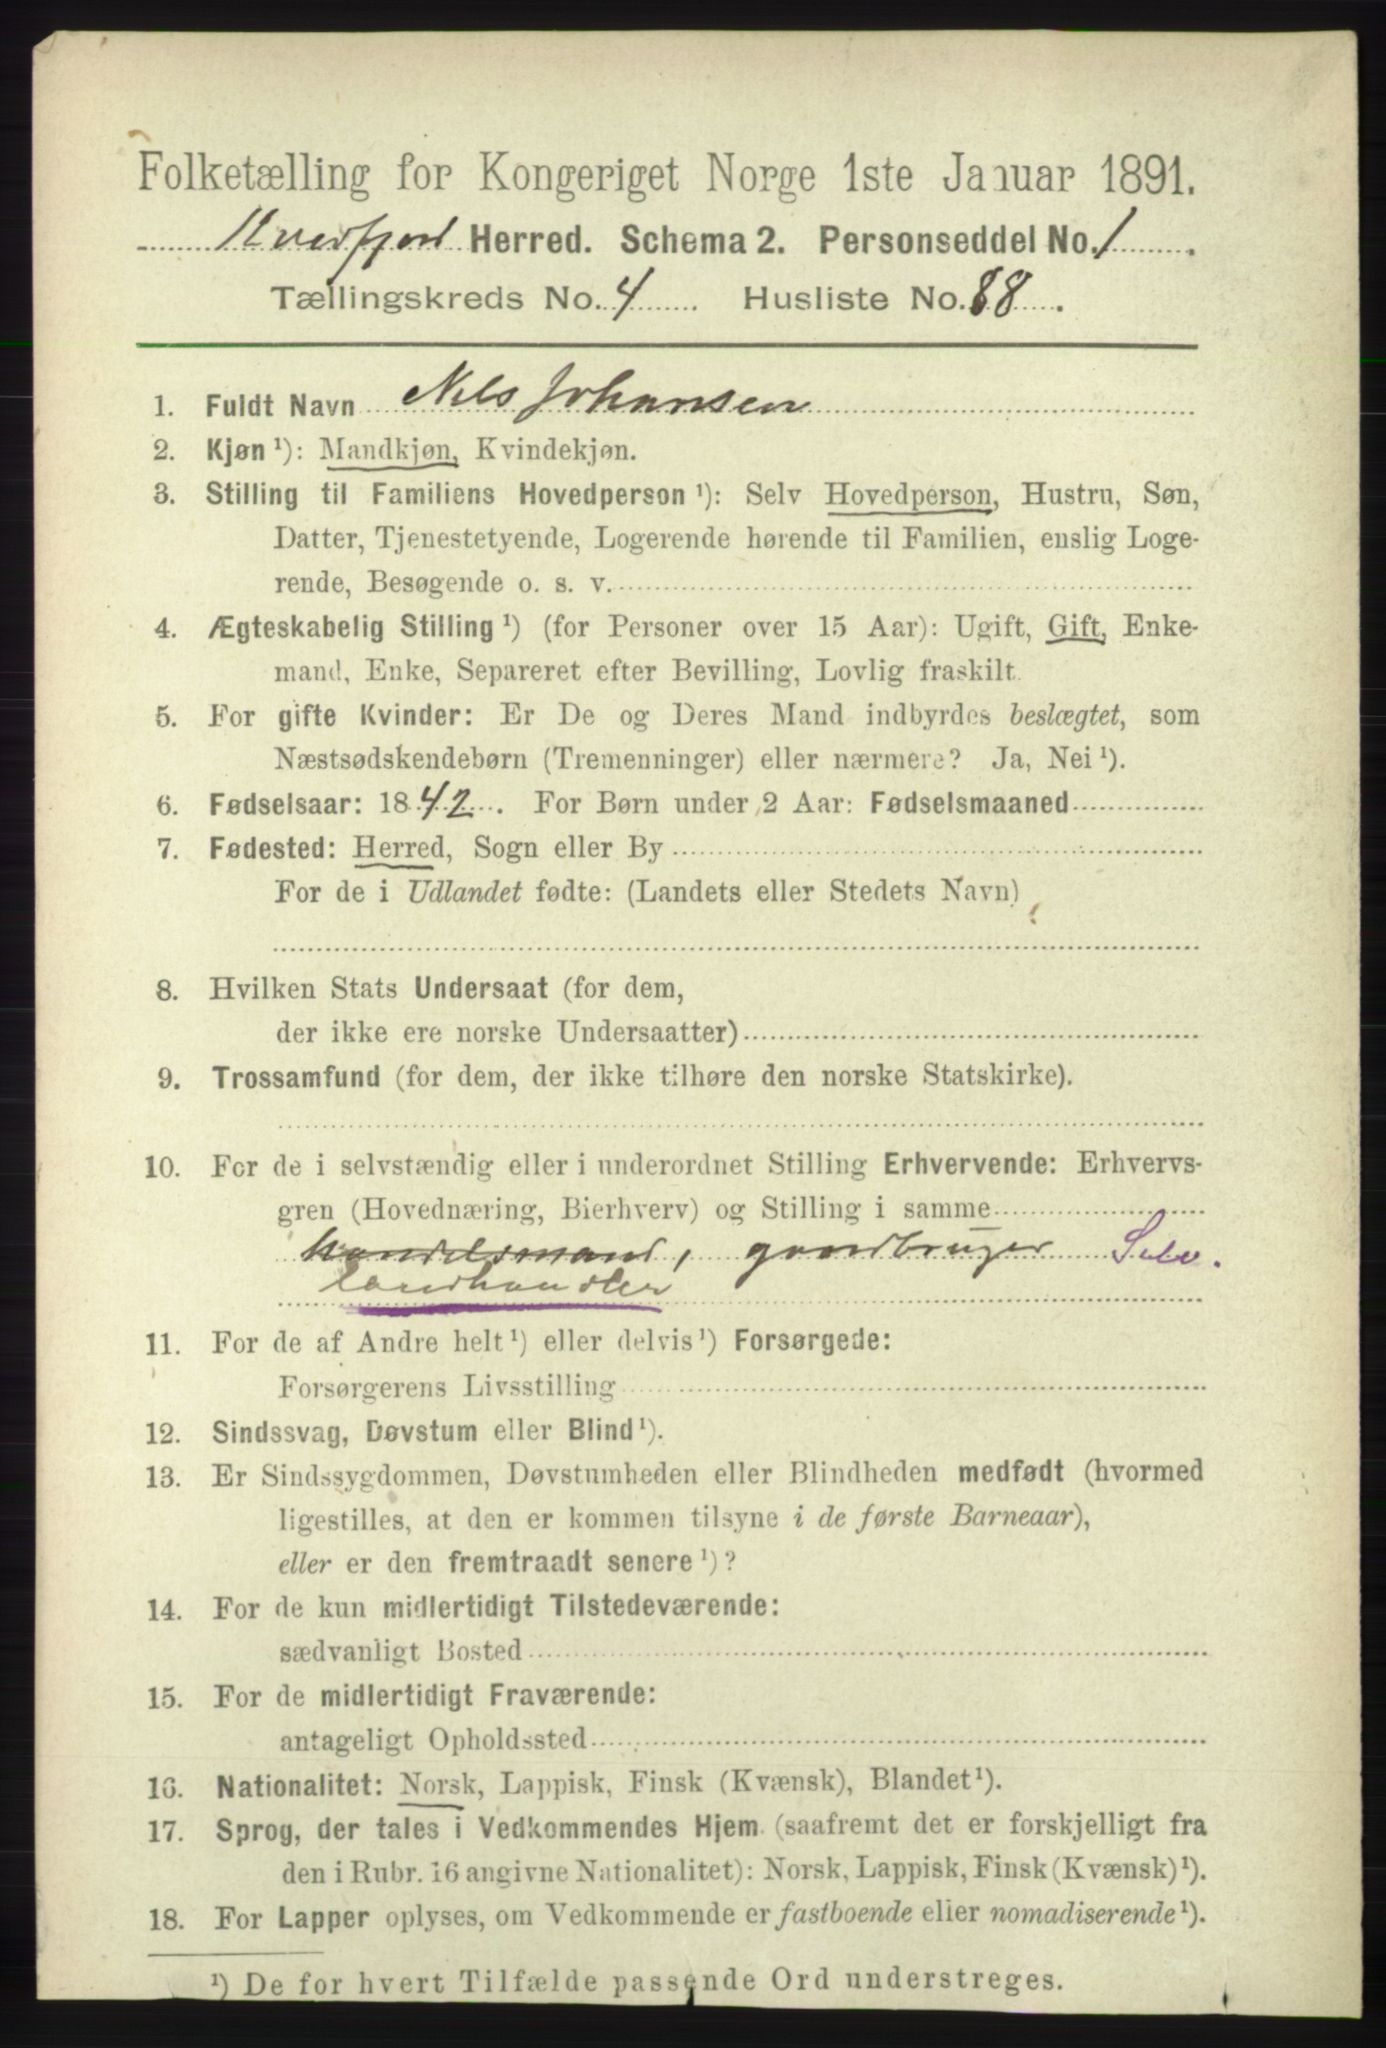 Folketælling for Kongeriget Norge 1ste Januar 1891.
Kvæfjord Herred. Schema 2. Personseddel No. 1.
Tællingskreds No. 4. Husliste No. 88.
1. Fuldt Navn Nils Johansen
2. Kjøn ¹): Mandkjøn, Kvindekjøn.
3. Stilling til Familiens Hovedperson ¹): Selv Hovedperson, Hustru, Søn,
Datter, Tjenestetyende, Logerende hørende til Familien, enslig Loge-
rende, Besøgende o. s. v.
4. Ægteskabelig Stilling ¹) (for Personer over 15 Aar): Ugift, Gift, Enke-
mand, Enke, Separeret efter Bevilling, Lovlig fraskilt.
5. For gifte Kvinder: Er De og Deres Mand indbyrdes beslægtet, som
Næstsødskendebørn (Tremenninger) eller nærmere? Ja, Nei ¹).
6. Fødselsaar: 1842. For Børn under 2 Aar: Fødselsmaaned
7. Fødested: Herred, Sogn eller By
For de i Udlandet fødte: (Landets eller Stedets Navn)
8. Hvilken Stats Undersaat (for dem,
der ikke ere norske Undersaatter)
9. Trossamfund (for dem, der ikke tilhøre den norske Statskirke).
10. For de i selvstændig eller i underordnet Stilling Erhvervende: Erhvervs-
gren (Hovednæring, Bierhverv) og Stilling i samme
handelsmand, gaardbruger Selv.
landhandler
11. For de af Andre helt ¹) eller delvis ¹) Forsørgede:
Forsørgerens Livsstilling
12. Sindssvag, Døvstum eller Blind ¹).
13. Er Sindssygdommen, Døvstumheden eller Blindheden medfødt (hvormed
ligestilles, at den er kommen tilsyne i de første Barneaar),
eller er den fremtraadt senere ¹)?
14. For de kun midlertidigt Tilstedeværende:
sædvanligt Bosted
15. For de midlertidigt Fraværende:
antageligt Opholdssted
16. Nationalitet: Norsk, Lappisk, Finsk (Kvænsk), Blandet ¹).
17. Sprog, der tales i Vedkommendes Hjem (saafremt det er forskjelligt fra
den i Rubr. 16 angivne Nationalitet): Norsk, Lappisk, Finsk (Kvænsk) ¹).
18. For Lapper oplyses, om Vedkommende er fastboende eller nomadiserende ¹).
¹) De for hvert Tilfælde passende Ord understreges.